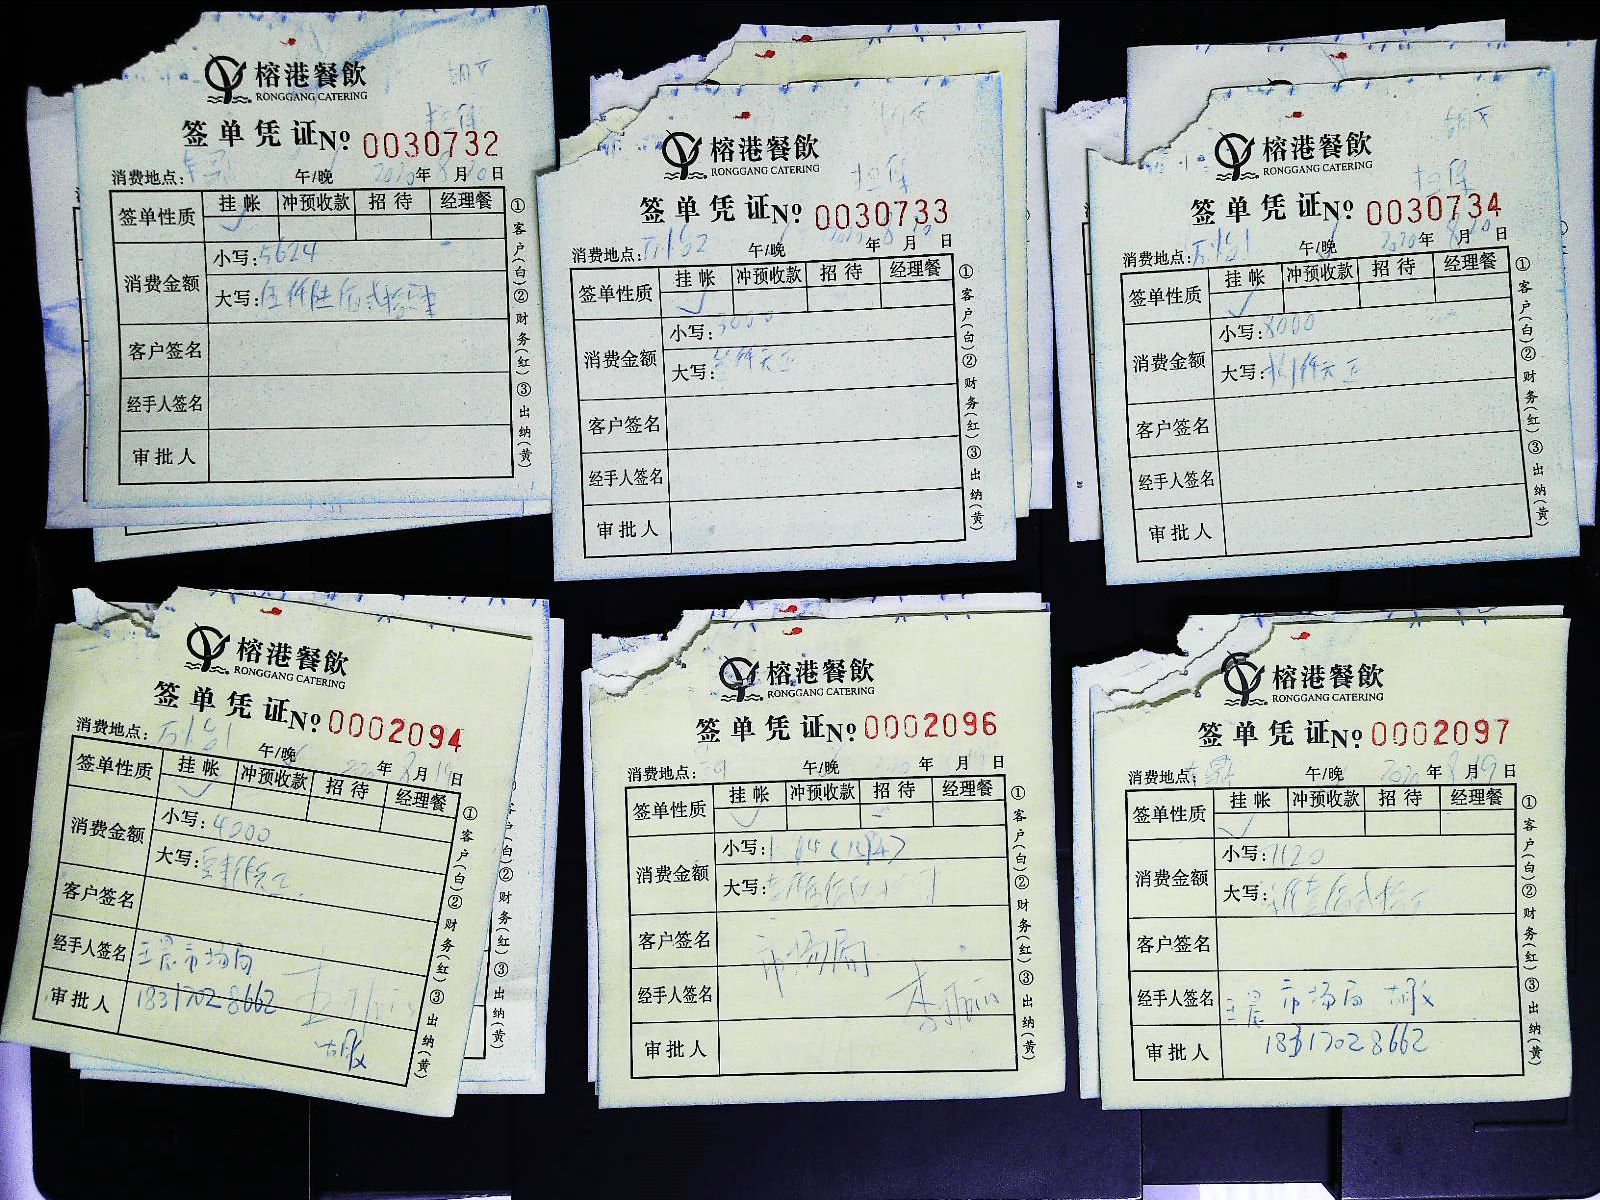 榕港餐飲
RONGGANG CATERING
签单凭证№ 0030732
消费地点: 午/晚 2020年8月20日
签单性质 挂帐 冲预收款 招待 经理餐
消费金额 小写:5624
大写:伍仟陆佰贰拾
客户签名
经手人签名
审批人
①客户(白)②财务(红)③出纳(黄)
榕港餐飲
RONGGANG CATERING
担保
签单凭证№ 0030733
消费地点: 午/晚 年 月 日
签单性质 挂帐 冲预收款 招待 经理餐
消费金额 小写:3000
大写:
客户签名
经手人签名
审批人
①客户(白)②财务(红)③出纳(黄)
榕港餐飲
RONGGANG CATERING
担保
签单凭证№ 0030734
消费地点: 午/晚 2020年8月20日
签单性质 挂帐 冲预收款 招待 经理餐
消费金额 小写:8000
大写:
客户签名
经手人签名
审批人
①客户(白)②财务(红)③出纳(黄)
榕港餐飲
RONGGANG CATERING
签单凭证№ 0002094
消费地点: 午/晚 年8月19日
签单性质 挂帐 冲预收款 招待 经理餐
消费金额 小写:4000
大写:
客户签名
经手人签名 王晨市场局
审批人 18317028662
①客户(白)②财务(红)③出纳(黄)
榕港餐飲
RONGGANG CATERING
签单凭证№ 0002096
消费地点: 午/晚 年 月 日
签单性质 挂帐 冲预收款 招待 经理餐
消费金额 小写:
大写:
客户签名 市场局
经手人签名
审批人
①客户(白)②财务(红)③出纳(黄)
榕港餐飲
RONGGANG CATERING
签单凭证№ 0002097
消费地点: 午/晚 2020年8月19日
签单性质 挂帐 冲预收款 招待 经理餐
消费金额 小写:7120
大写:
客户签名
经手人签名 王晨 市场局
审批人 18317028662
①客户(白)②财务(红)③出纳(黄)